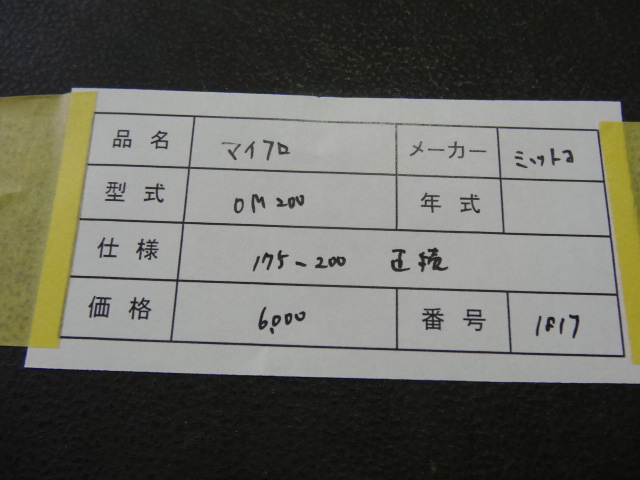 品名 マイクロ メーカー ミツトヨ
型式 OM200 年式
仕様 175-200
価格 6,000 番号 1817